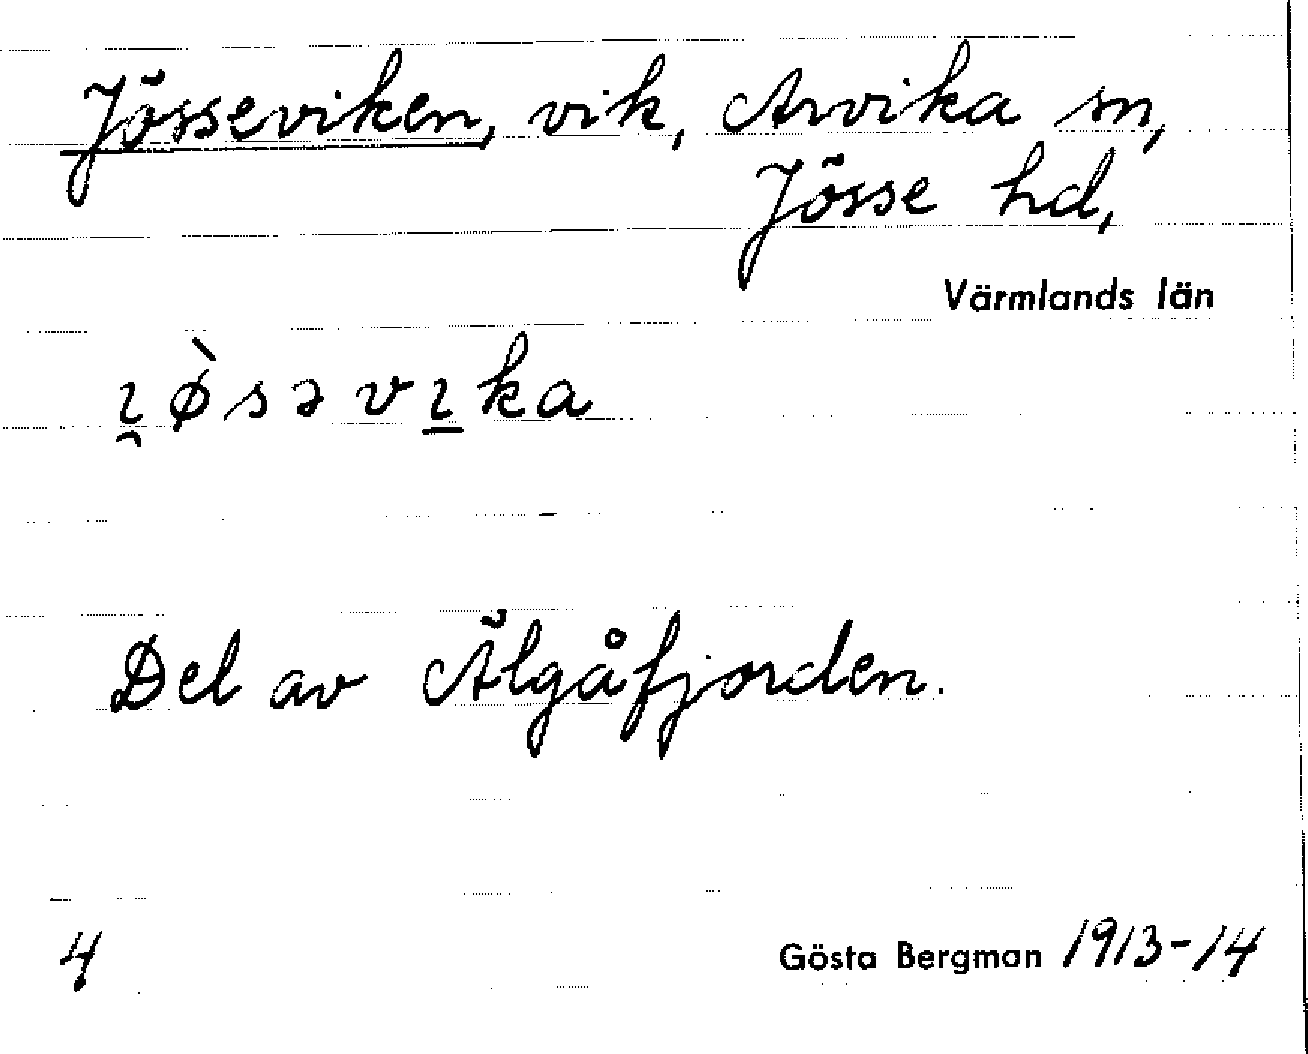 Jösseviken, vik, Arvika sn,
Jösse hd,
Värmlands län
ı̯ø̀səvı̲ka
Del av Älgåfjorden.
4
Gösta Bergman 1913-14